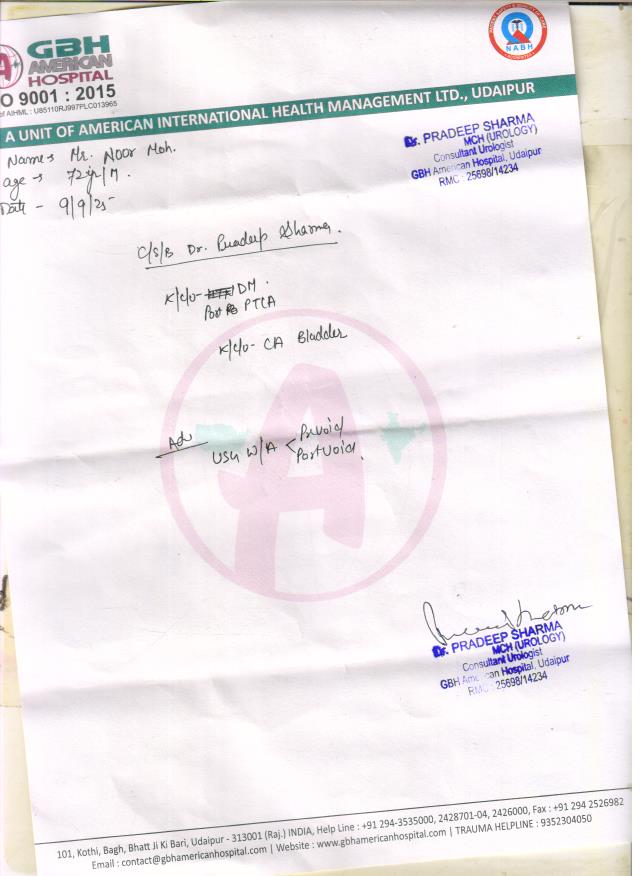 GBH
AMERICAN
HOSPITAL
O 9001 : 2015
of AIHML : U85110RJ997PLC013965
NABH
A UNIT OF AMERICAN INTERNATIONAL HEALTH MANAGEMENT LTD., UDAIPUR
Dr. PRADEEP SHARMA
MCH (UROLOGY)
Consultant Urologist
GBH American Hospital, Udaipur
RMC : 25698/14234
Name → Mr. Noor Moh.
age → 72yr/M.
Date - 9/9/25
C/S/B Dr. Pradeep Sharma.
K/c/o- DM.
Post PTCA
K/c/o- CA Bladder
Adv
USG W/A < Prevoid
Postvoid.
Dr. PRADEEP SHARMA
MCH (UROLOGY)
Consultant Urologist
GBH American Hospital, Udaipur
RMC : 25698/14234
101, Kothi, Bagh, Bhatt Ji Ki Bari, Udaipur - 313001 (Raj.) INDIA, Help Line : +91 294-3535000, 2428701-04, 2426000, Fax : +91 294 2526982
Email : contact@gbhamericanhospital.com | Website : www.gbhamericanhospital.com | TRAUMA HELPLINE : 9352304050